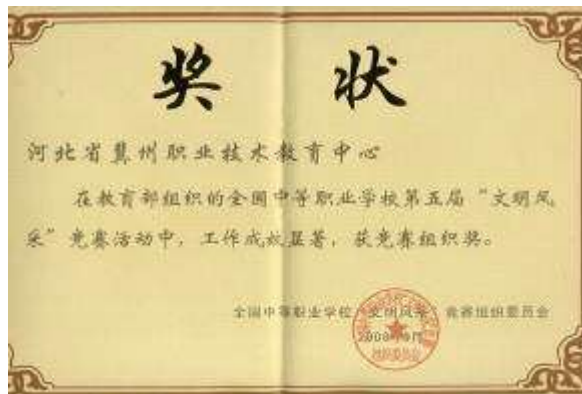 奖 状
河北省冀州职业技术教育中心
在教育部组织的全国中等职业学校第五届“文明风
采”竞赛活动中，工作成效显著，获竞赛组织奖。
全国中等职业学校“文明风采”竞赛组织委员会